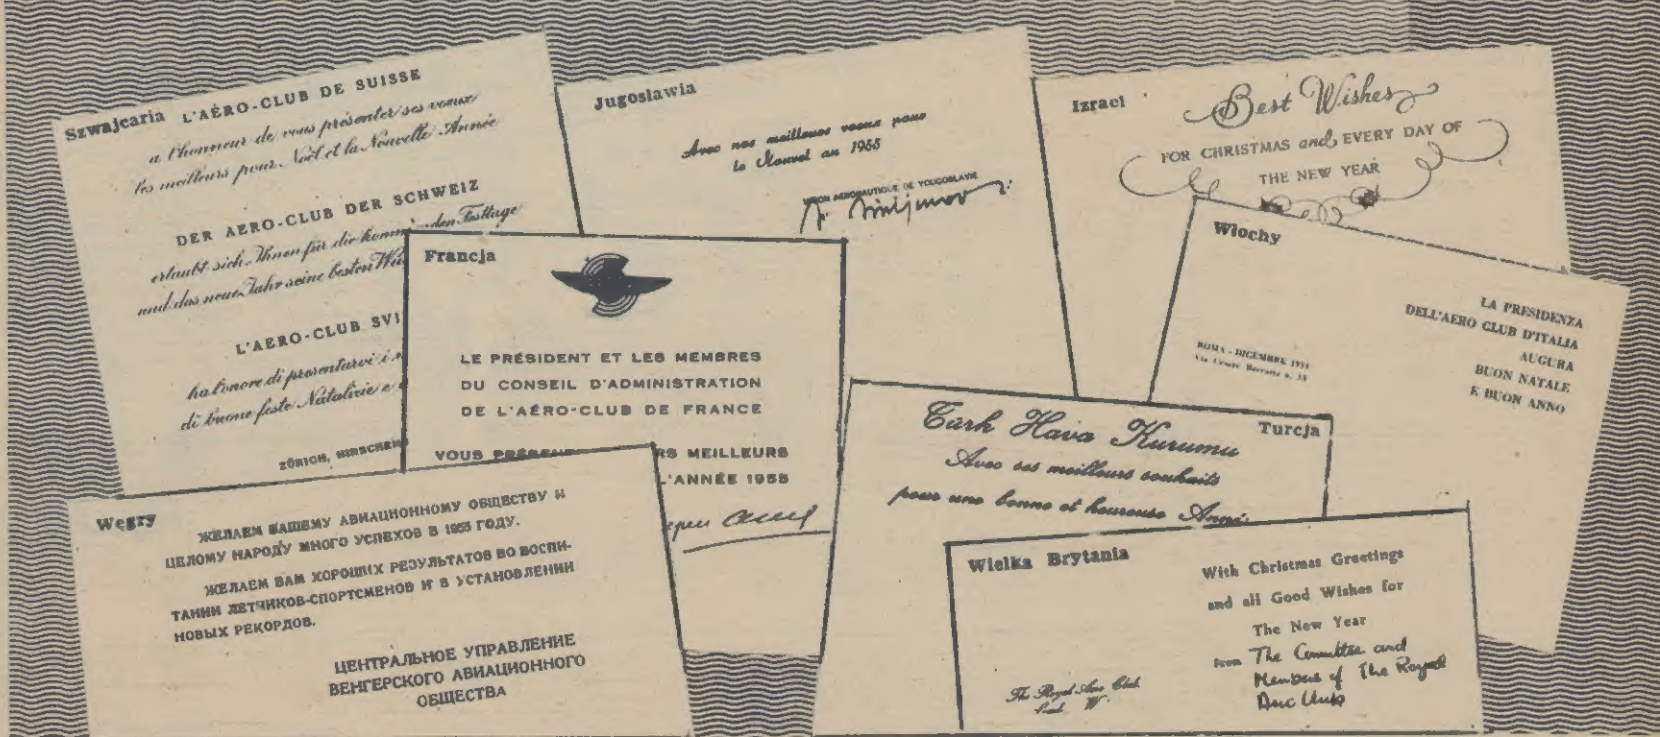 Szwajcaria L'AÉRO-CLUB DE SUISSE
a l'honneur de vous présenter ses voeux
les meilleurs pour Noël et la Nouvelle Année
DER AERO-CLUB DER SCHWEIZ
erlaubt sich, Ihnen für die kommenden Festtage
und das neue Jahr seine besten
L'AERO-CLUB
ha l'onore di presentarvi i
di buone feste Natalizie e
ZÜRICH,
Jugosławia
Avec nos meilleurs voeux pour
le Nouvel an 1955
UNION AERONAUTIQUE DE YOUGOSLAVIE
Izrael
Best Wishes
FOR CHRISTMAS and EVERY DAY OF
THE NEW YEAR
Francja
LE PRÉSIDENT ET LES MEMBRES
DU CONSEIL D'ADMINISTRATION
DE L'AÉRO-CLUB DE FRANCE
VOUS RS MEILLEURS
L'ANNÉE 1955
Włochy
LA PRESIDENZA
DELL'AERO CLUB D'ITALIA
AUGURA
BUON NATALE
E BUON ANNO
ROMA - DICEMBRE 1954
Via Cesare Beccaria n. 35
Türk Hava Kurumu
Turcja
Avec ses meilleurs souhaits
pour une bonne et heureuse Année.
Węgry
ЖЕЛАЕМ ВАШЕМУ АВИАЦИОННОМУ ОБЩЕСТВУ И
ЦЕЛОМУ НАРОДУ МНОГО УСПЕХОВ В 1955 ГОДУ.
ЖЕЛАЕМ ВАМ ХОРОШИХ РЕЗУЛЬТАТОВ ВО ВОСПИ-
ТАНИИ ЛЕТЧИКОВ-СПОРТСМЕНОВ И В УСТАНОВЛЕНИИ
НОВЫХ РЕКОРДОВ.
ЦЕНТРАЛЬНОЕ УПРАВЛЕНИЕ
ВЕНГЕРСКОГО АВИАЦИОННОГО
ОБЩЕСТВА
Wielka Brytania
With Christmas Greetings
and all Good Wishes for
The New Year
from The Committee and
Members of The Royal
Aero Club
The Royal Aero Club